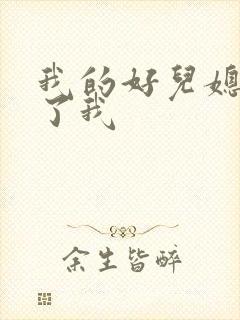 我的好兒媳
了我
余生皆醉